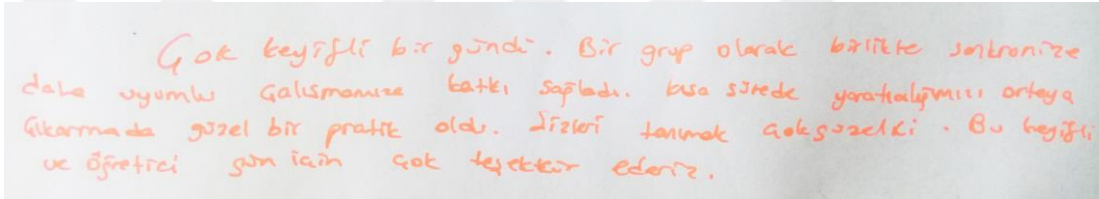 Çok keyifli bir gündü. Bir grup olarak birlikte senkronize
daha uyumlu çalışmamıza katkı sağladı. kısa sürede yaratıcılığımızı ortaya
çıkarmada güzel bir pratik oldu. Sizleri tanımak çok güzeldi. Bu keyifli
ve öğretici gün için çok teşekkür ederiz.